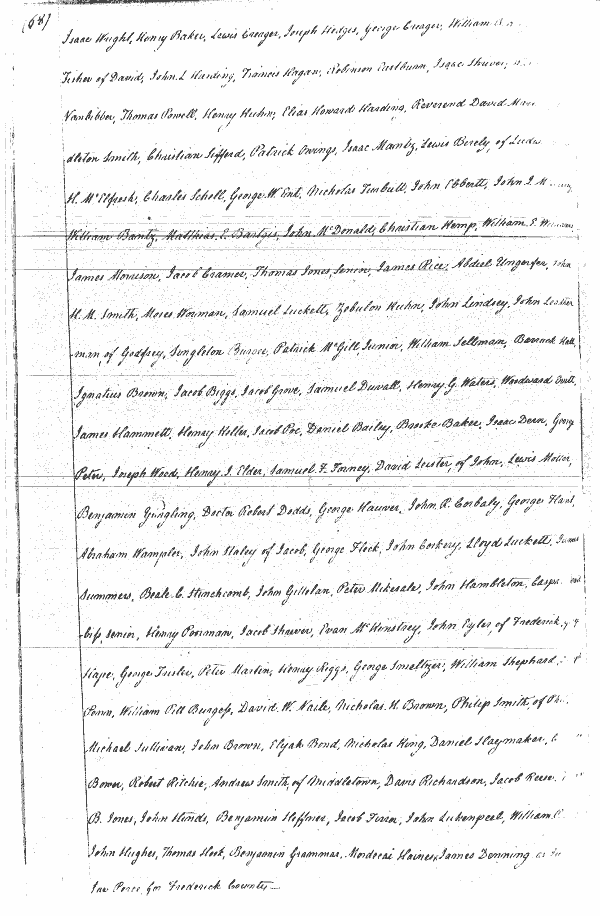 (68)
Isaac Wright, Henry Baker, Lewis Creager, Joseph Hedges, George Creager, William
Fisher of David, John L Harding, Francis Hagan, Robinson Eastburn, Isaac Shriver,
Vanbibber, Thomas Powell, Henry Kuhn, Elias Howard Harding, Reverend David
dleton Smith, Christian Sifford, Patrick Owings, Isaac Mantz, Lewis Birely, of
H. McElfresh, Charles Scholl, George W. Ent, Nicholas Turbutt, John Ebbert, John I.
William Bantz, Matthias E. Bartgis, John McDonald, Christian Kemp, William E.
James Morrison, Jacob Cramer, Thomas Jones, Senior, James Rice, Abdiel Unkefer, John
H. M. Smith, Moses Worman, Samuel Luckett, Zebulon Kuhn, John Lindsey, John
man, of Godfrey, Singleton Burgee, Patrick McGill, Junior, William Sellman, Barrack Hall,
Ignatius Brown, Jacob Biggs, Jacob Grove, Samuel Duvall, Henry G. Waters, Woodward Evitt,
James Hammett, Henry Keller, Jacob Poe, Daniel Bailey, Brooke Baker, Isaac Dern, George
Peter, Joseph Wood, Henry I. Elder, Samuel F. Forney, David Leister, of John, Lewis Motter,
Benjamin Yingling, Doctor Robert Dodds, George Hauver, John R. Corbaly, George
Abraham Wampler, John Staley of Jacob, George Flook, John Corkery, Lloyd Luckett, James
Summers, Beale C. Stinchcomb, John Gillelan, Peter Mikesale, John Hambleton,
Senior, Henry Poorman, Jacob Shriver, Evan McKinstrey, John Eyler, of Frederick,
George Trisler, Peter Martin, Henry Riggs, George Smeltzer, William Shephard,
William Pitt Burgess, David W. Naile, Nicholas H. Brown, Philip Smith, of
Michael Sullivan, John Brown, Elijah Bond, Nicholas King, Daniel Slaymaker,
Bower, Robert Ritchie, Andrew Smith, of Middletown, Davis Richardson, Jacob Reese,
B. Jones, John Hinds, Benjamin Heffner, Jacob Firor, John Lukenpeal, William
John Hughes, Thomas Hook, Benjamin Grammar, Mordecai Haines, James Denning
the Peace for Frederick County